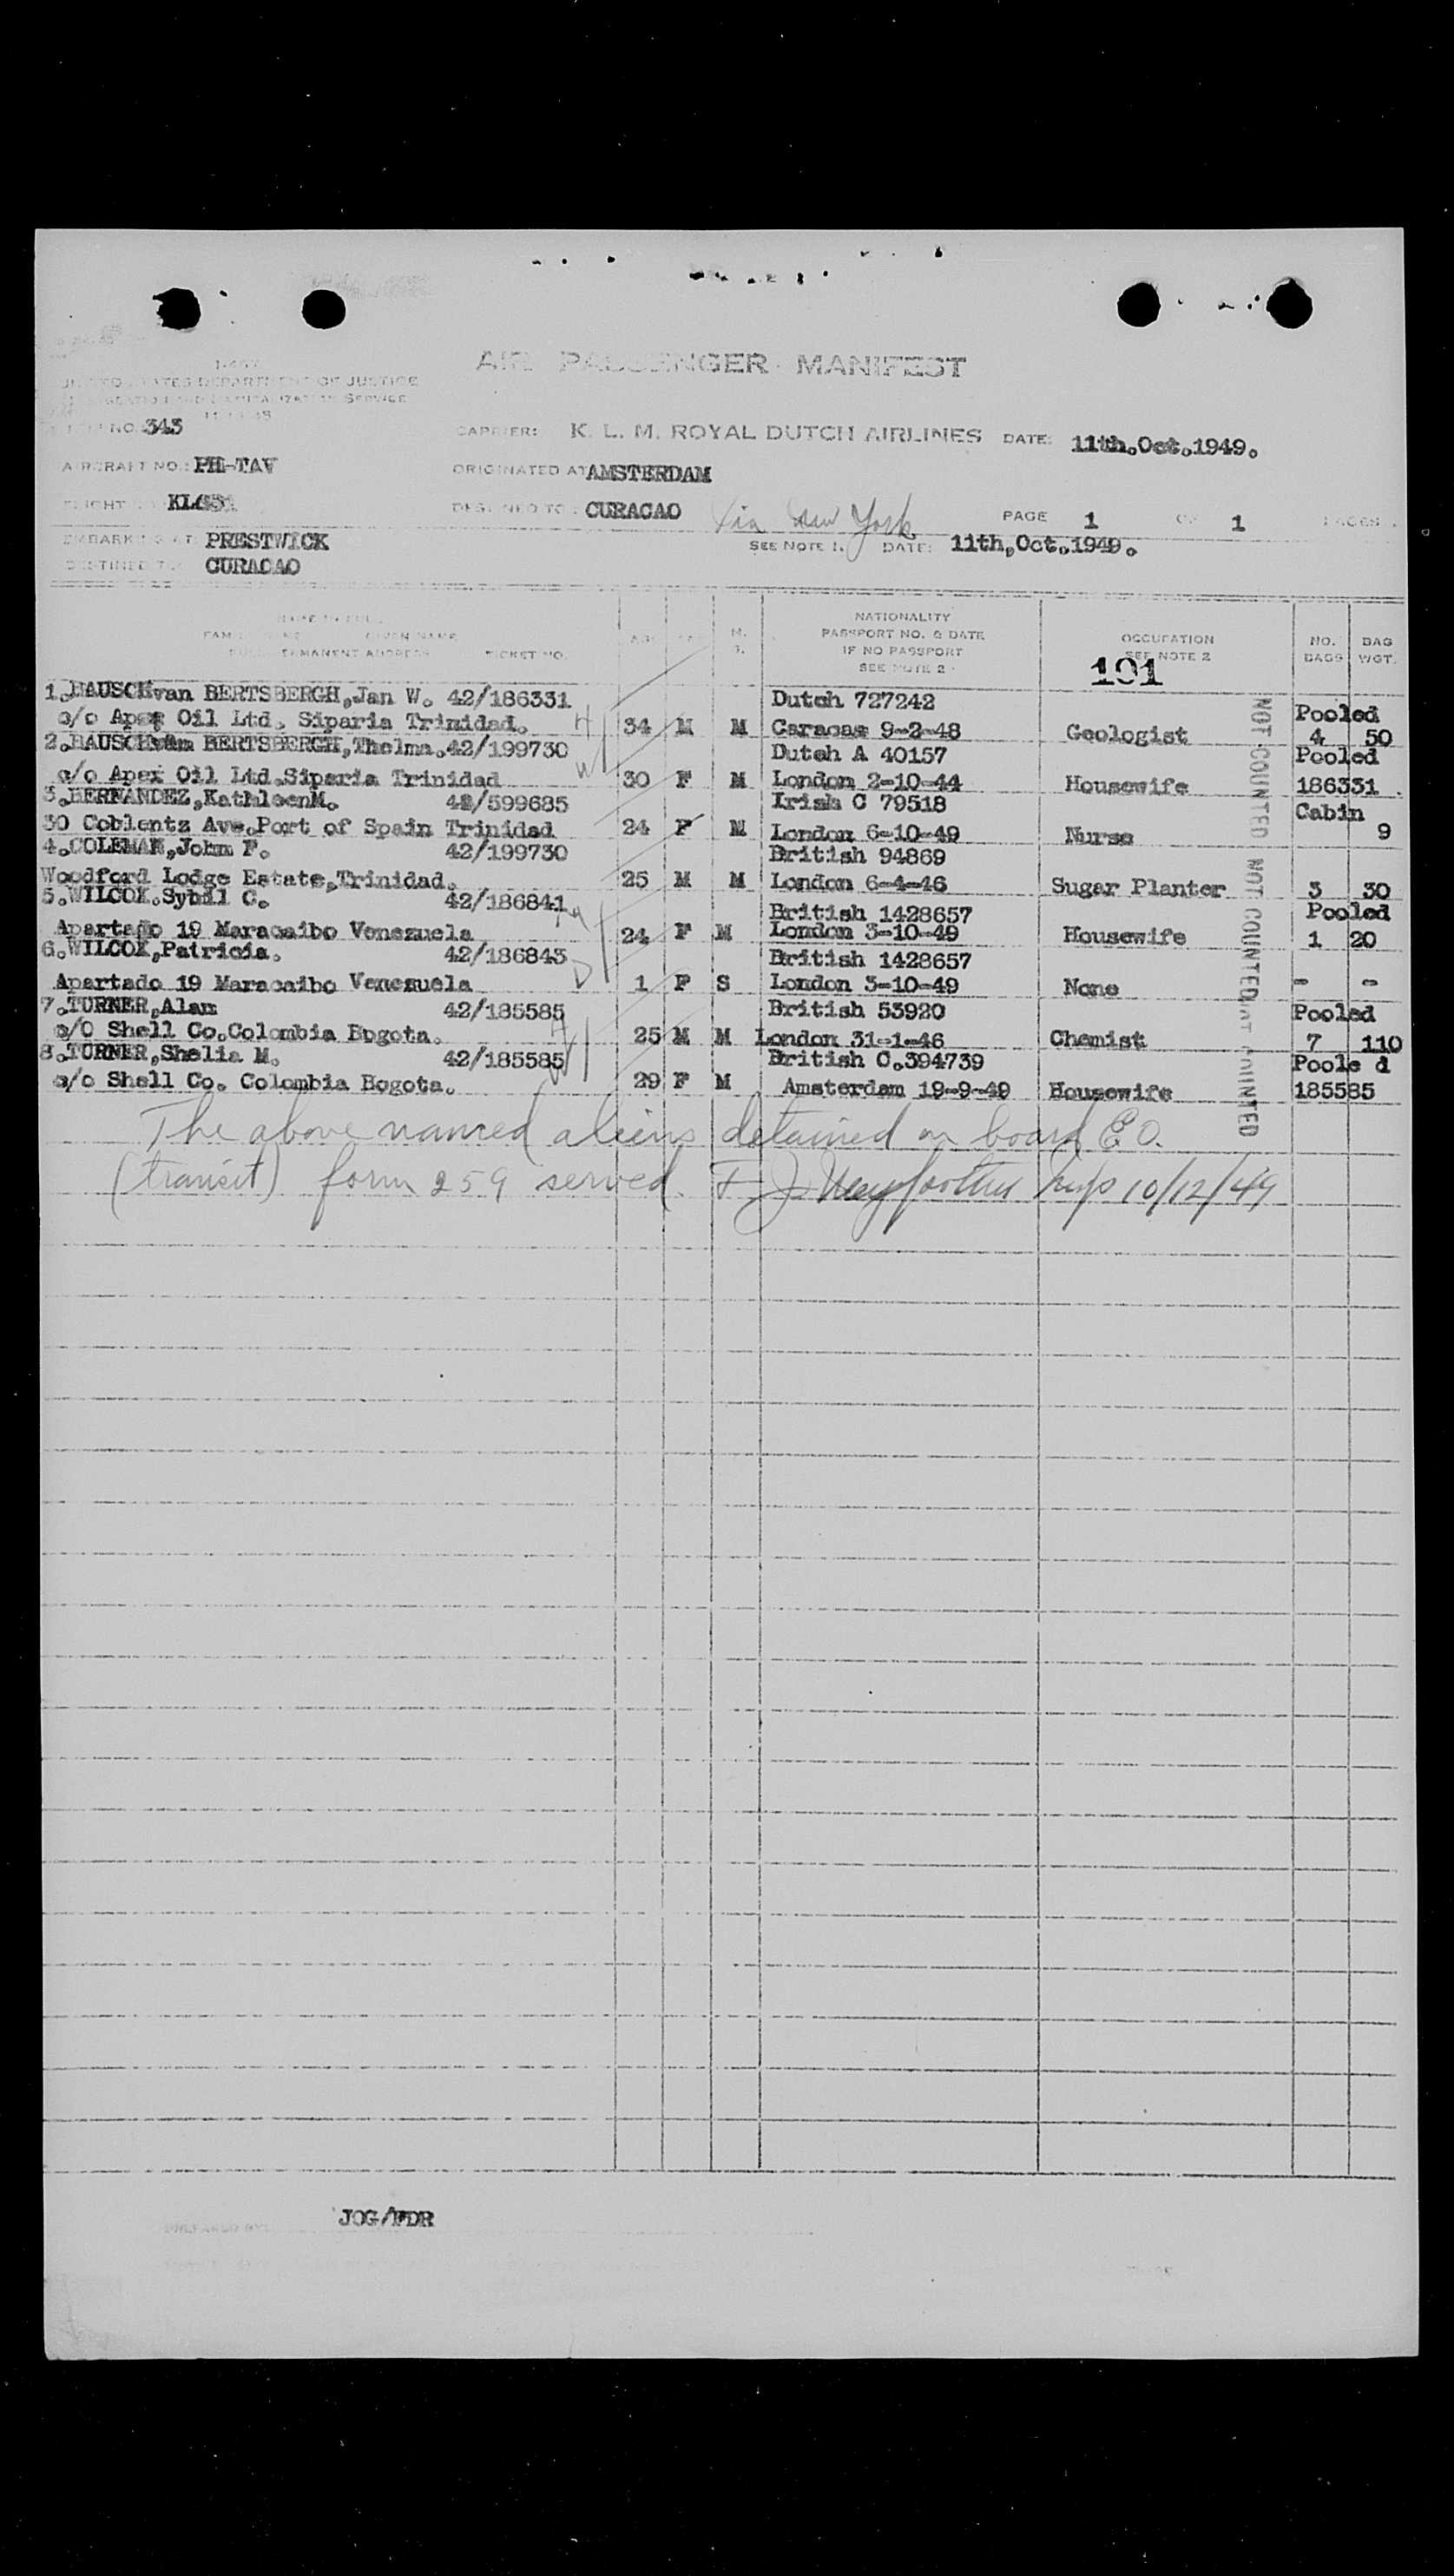 AIR PASSENGER MANIFEST
I-467
UNITED STATES DEPARTMENT OF JUSTICE
NATURALIZATION SERVICE
NO. 343
CARRIER: K. L. M. ROYAL DUTCH AIRLINES DATE: 11th.Oct.1949.
AIRCRAFT NO.: PH-TAV ORIGINATED AT AMSTERDAM
FLIGHT KL631 DESTINED TO: CURACAO Via New York PAGE 1 OF 1 PAGES
EMBARKING AT: PRESTWICK SEE NOTE 1. DATE: 11th,Oct.1949.
DESTINED TO: CURACAO
NAME IN FULL
FAMILY NAME GIVEN NAME
PERMANENT ADDRESS TICKET NO.
AGE SEX M. S.
NATIONALITY
PASSPORT NO. & DATE
IF NO PASSPORT
SEE NOTE 2
OCCUPATION
SEE NOTE 2
NO. BAGS
BAG WGT.
191
1.BAUSCHvan BERTSBERGH,Jan W. 42/186331 Dutch 727242 Pooled
c/o Apex Oil Ltd. Siparia Trinidad. H 34 M M Caracas 9-2-48 Geologist 4 50
2.BAUSCHvan BERTSBERGH,Thelma.42/199730 Dutch A 40157 Pooled
c/o Apex Oil Ltd.Siparia Trinidad W 30 F M London 2-10-44 Housewife 186331
3.HERNANDEZ,KathleenM. 42/599685 Irish C 79518 Cabin
30 Coblentz Ave.Port of Spain Trinidad 24 F M London 6-10-49 Nurse 9
4.COLEMAN,John F. 42/199730 British 94869
Woodford Lodge Estate,Trinidad. 25 M M London 6-4-46 Sugar Planter 3 30
5.WILCOX.Sybil C. 42/186841 British 1428657 Pooled
Apartado 19 Maracaibo Venezuela 24 F M London 3-10-49 Housewife 1 20
6.WILCOX,Patricia. 42/186843 British 1428657
Apartado 19 Maracaibo Venezuela D 1 F S London 3-10-49 None - -
7.TURNER,Alan 42/185585 British 53920 Pooled
c/O Shell Co.Colombia Bogota. H 25 M M London 31-1-46 Chemist 7 110
8.TURNER,Shelia M. 42/185585 British C.394739 Poole d
c/o Shell Co. Colombia Bogota. W 29 F M Amsterdam 19-9-49 Housewife 185585
NOT COUNTED
NOT COUNTED
NOT COUNTED
The above named aliens detained on board E O.
(transit) form 259 served. F J Insp 10/12/49
PREPARED BY: JOG/FDR